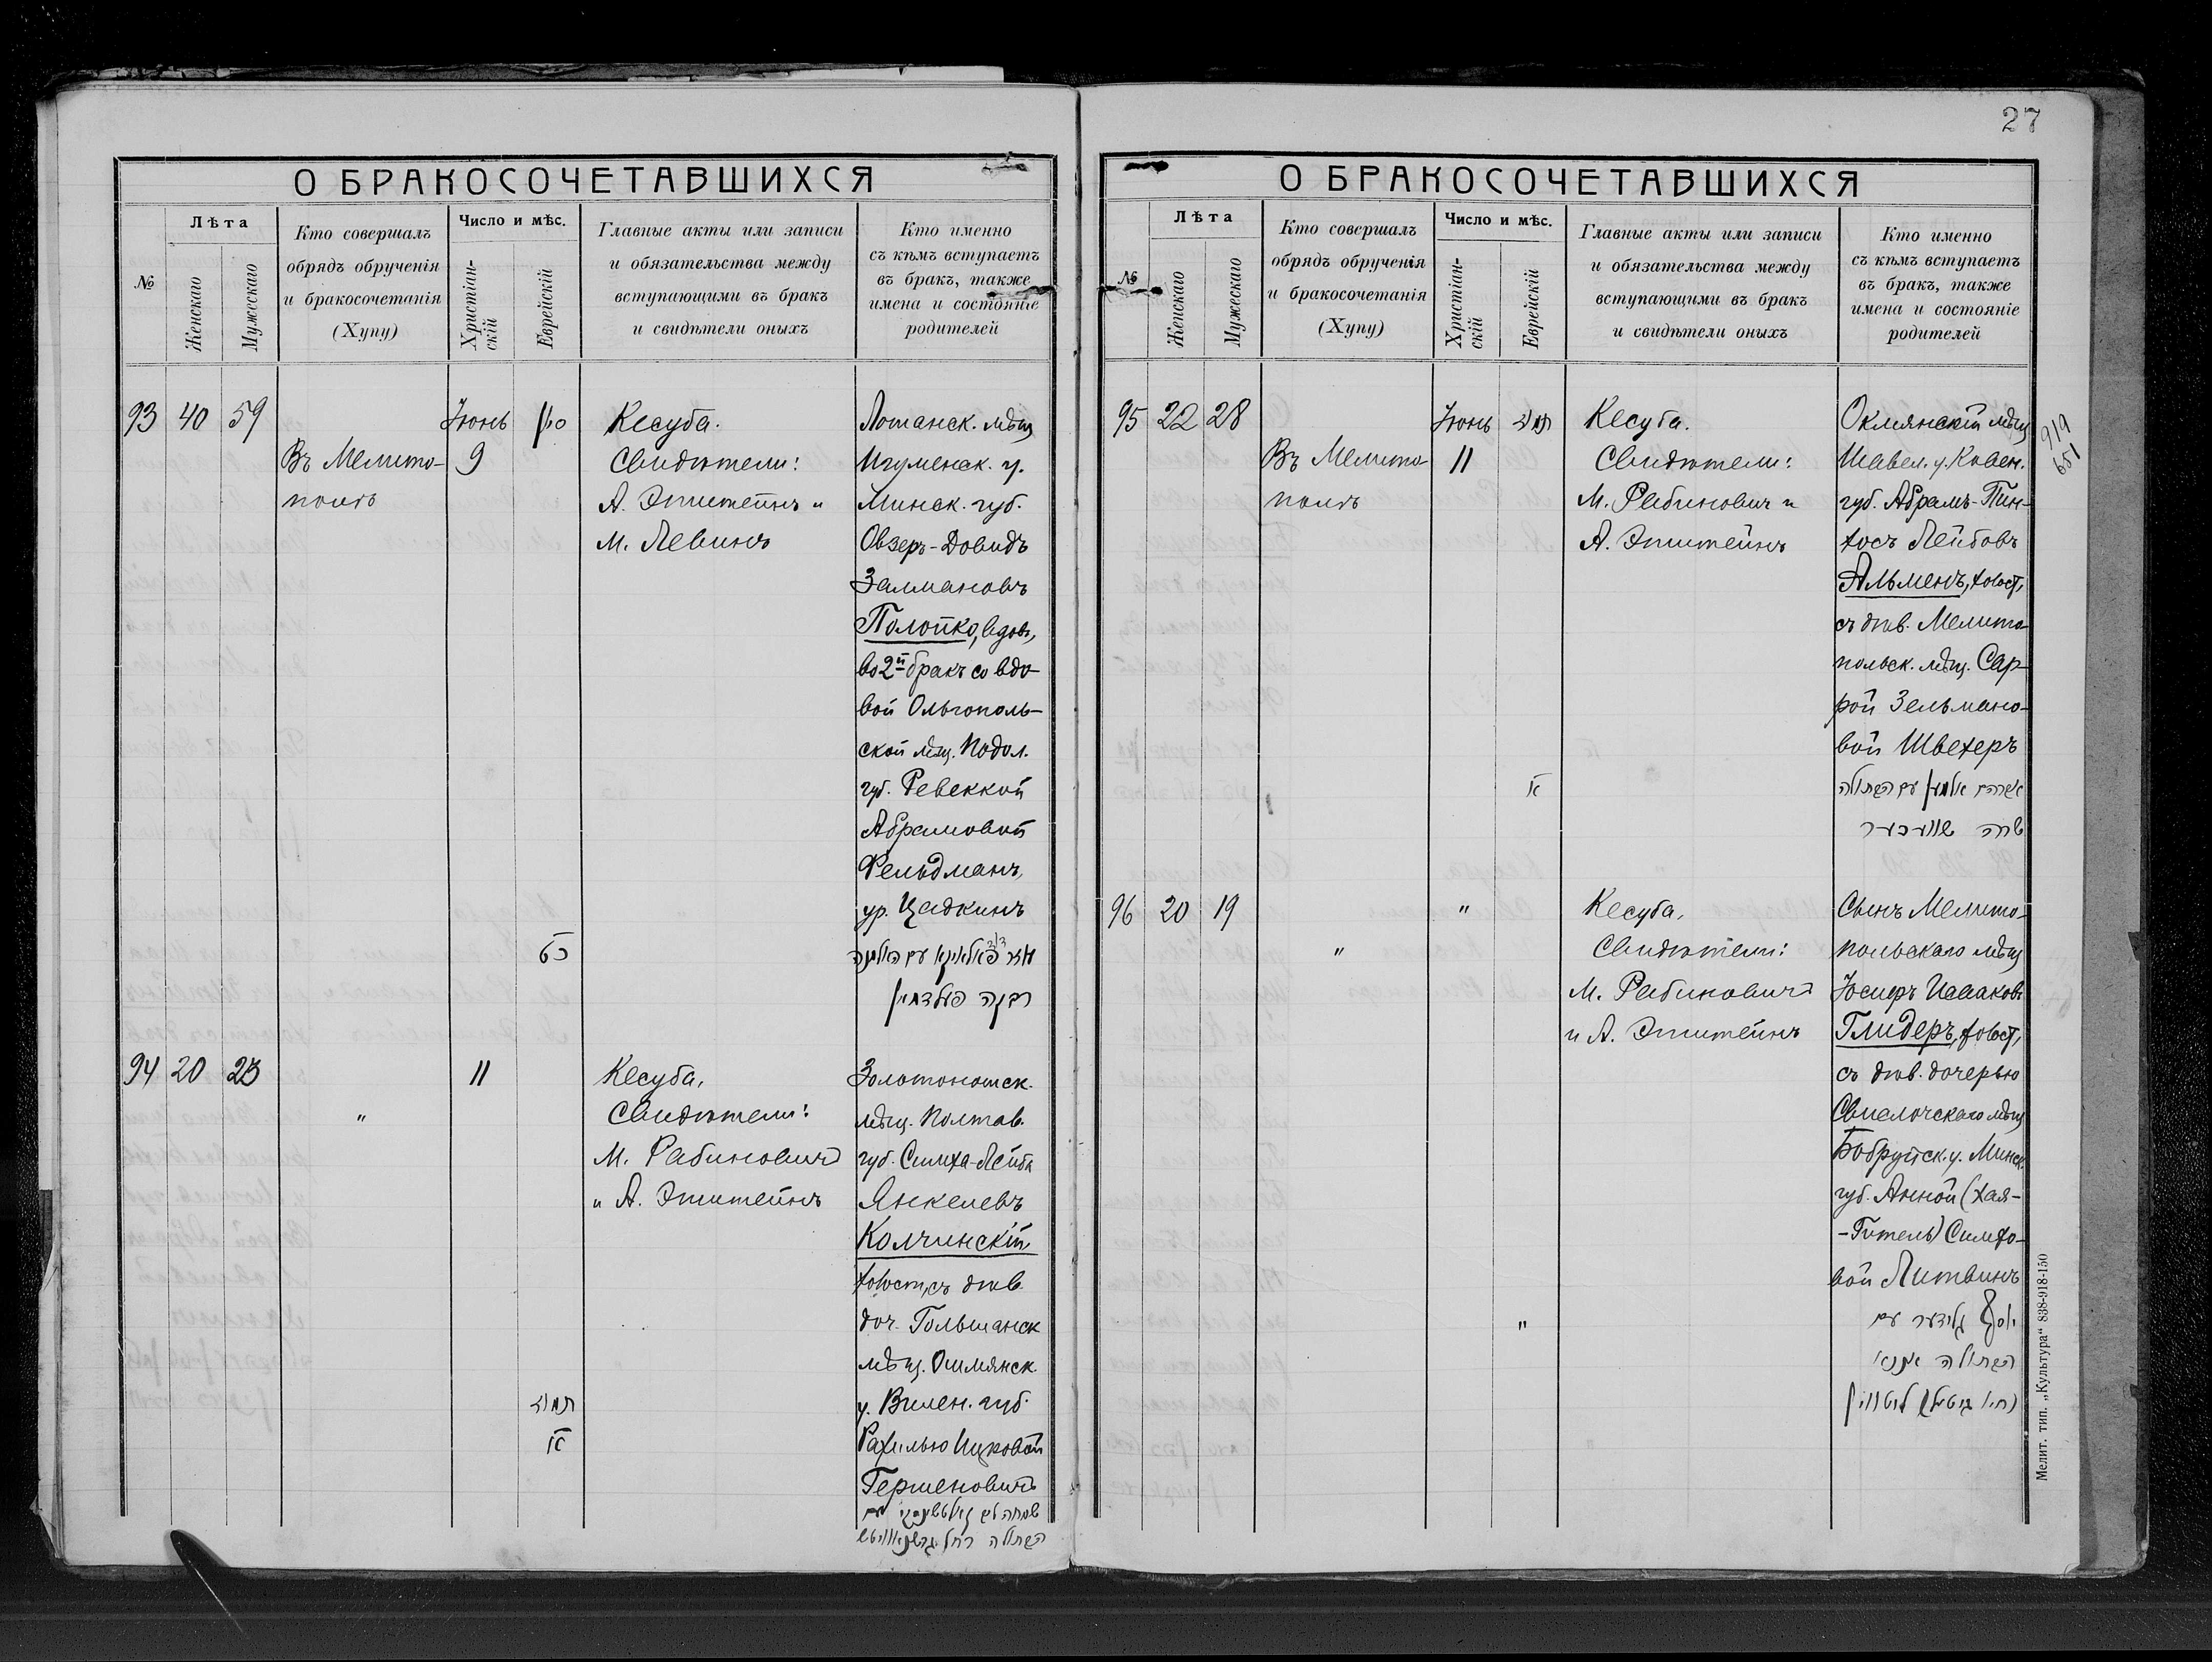 27
О БРАКОСОЧЕТАВШИХСЯ
№
Лѣта
Женскаго
Мужескаго
Кто совершалъ
обрядъ обрученія
и бракосочетанія
(Хупу)
Число и мѣс.
Христіан-
скій
Еврейскій
Главные акты или записи
и обязательства между
вступающими въ бракъ
и свидѣтели оныхъ
Кто именно
съ кѣмъ вступаетъ
въ бракъ, также
имена и состояніе
родителей
93 40 59
Въ Мелито-
полѣ
Іюнь
9
סיון
כט
Кесуба.
Свидѣтели:
А. Эпштейнъ и
М. Левинъ
мѣщ
Игуменск. у.
Минск. губ.
Овзеръ-Довидъ
Залмановъ
Полопко, вдов.,
во 2й бракъ со вдо-
вой Ольгополь-
ской мѣщ. Подол.
губ. Ревеккой
Абрамовой
Фельдманъ,
ур. Цадкинъ
עם האלמנה
רבקה פעלדמאן
94 20 23
"
11
תמוז
א
Кесуба.
Свидѣтели:
М. Рабиновичъ
и А. Эпштейнъ
Золотоношск.
мѣщ. Полтав.
губ. Симха-Лейба
Янкелевъ
Колчинскій
холост, съ дѣв.
доч. Гольшанск
мѣщ. Ошмянск.
у. Вилен. губ.
Рахилью Ицковой
Гершеновичъ
שמחה ליב קאלטשינסקי עם
הבתולה רחל גרשענאוויטש
О БРАКОСОЧЕТАВШИХСЯ
№
Лѣта
Женскаго
Мужескаго
Кто совершалъ
обрядъ обрученія
и бракосочетанія
(Хупу)
Число и мѣс.
Христіан-
скій
Еврейскій
Главные акты или записи
и обязательства между
вступающими въ бракъ
и свидѣтели оныхъ
Кто именно
съ кѣмъ вступаетъ
въ бракъ, также
имена и состояніе
родителей
95 22 28
Въ Мелито-
полѣ
Іюнь
11
תמוז
א
Кесуба.
Свидѣтели:
М. Рабинович и
А. Эпштейнъ
Окмянскій мѣщ
Шавел. у. Ковен.
губ. Абрамъ-Пин-
хосъ Лейбовъ
Альменъ, холост,
съ дѣв. Мелито-
польск. мѣщ. Сар-
рой Зельмано-
вой Швехеръ
אברהם אלמען עם הבתולה
שרה שוועכער
919
651
96 20 19
"
"
"
Кесуба.
Свидѣтели:
М. Рабиновичъ
и А. Эпштейнъ
Сынъ Мелито-
польскаго мѣщ
Іосифъ Исааковъ
Глидеръ, холост,
съ дѣв. дочерью
Свислочскаго мѣщ
Бобруйск. у. Минск.
губ. Анной (Хая-
-Гитель) Симхо-
вой Литвинъ
יוסף גלידער עם
הבתולה אננא
(חיה גיטל) ליטווין
Мелит. тип. „Культура“ 838-918-150